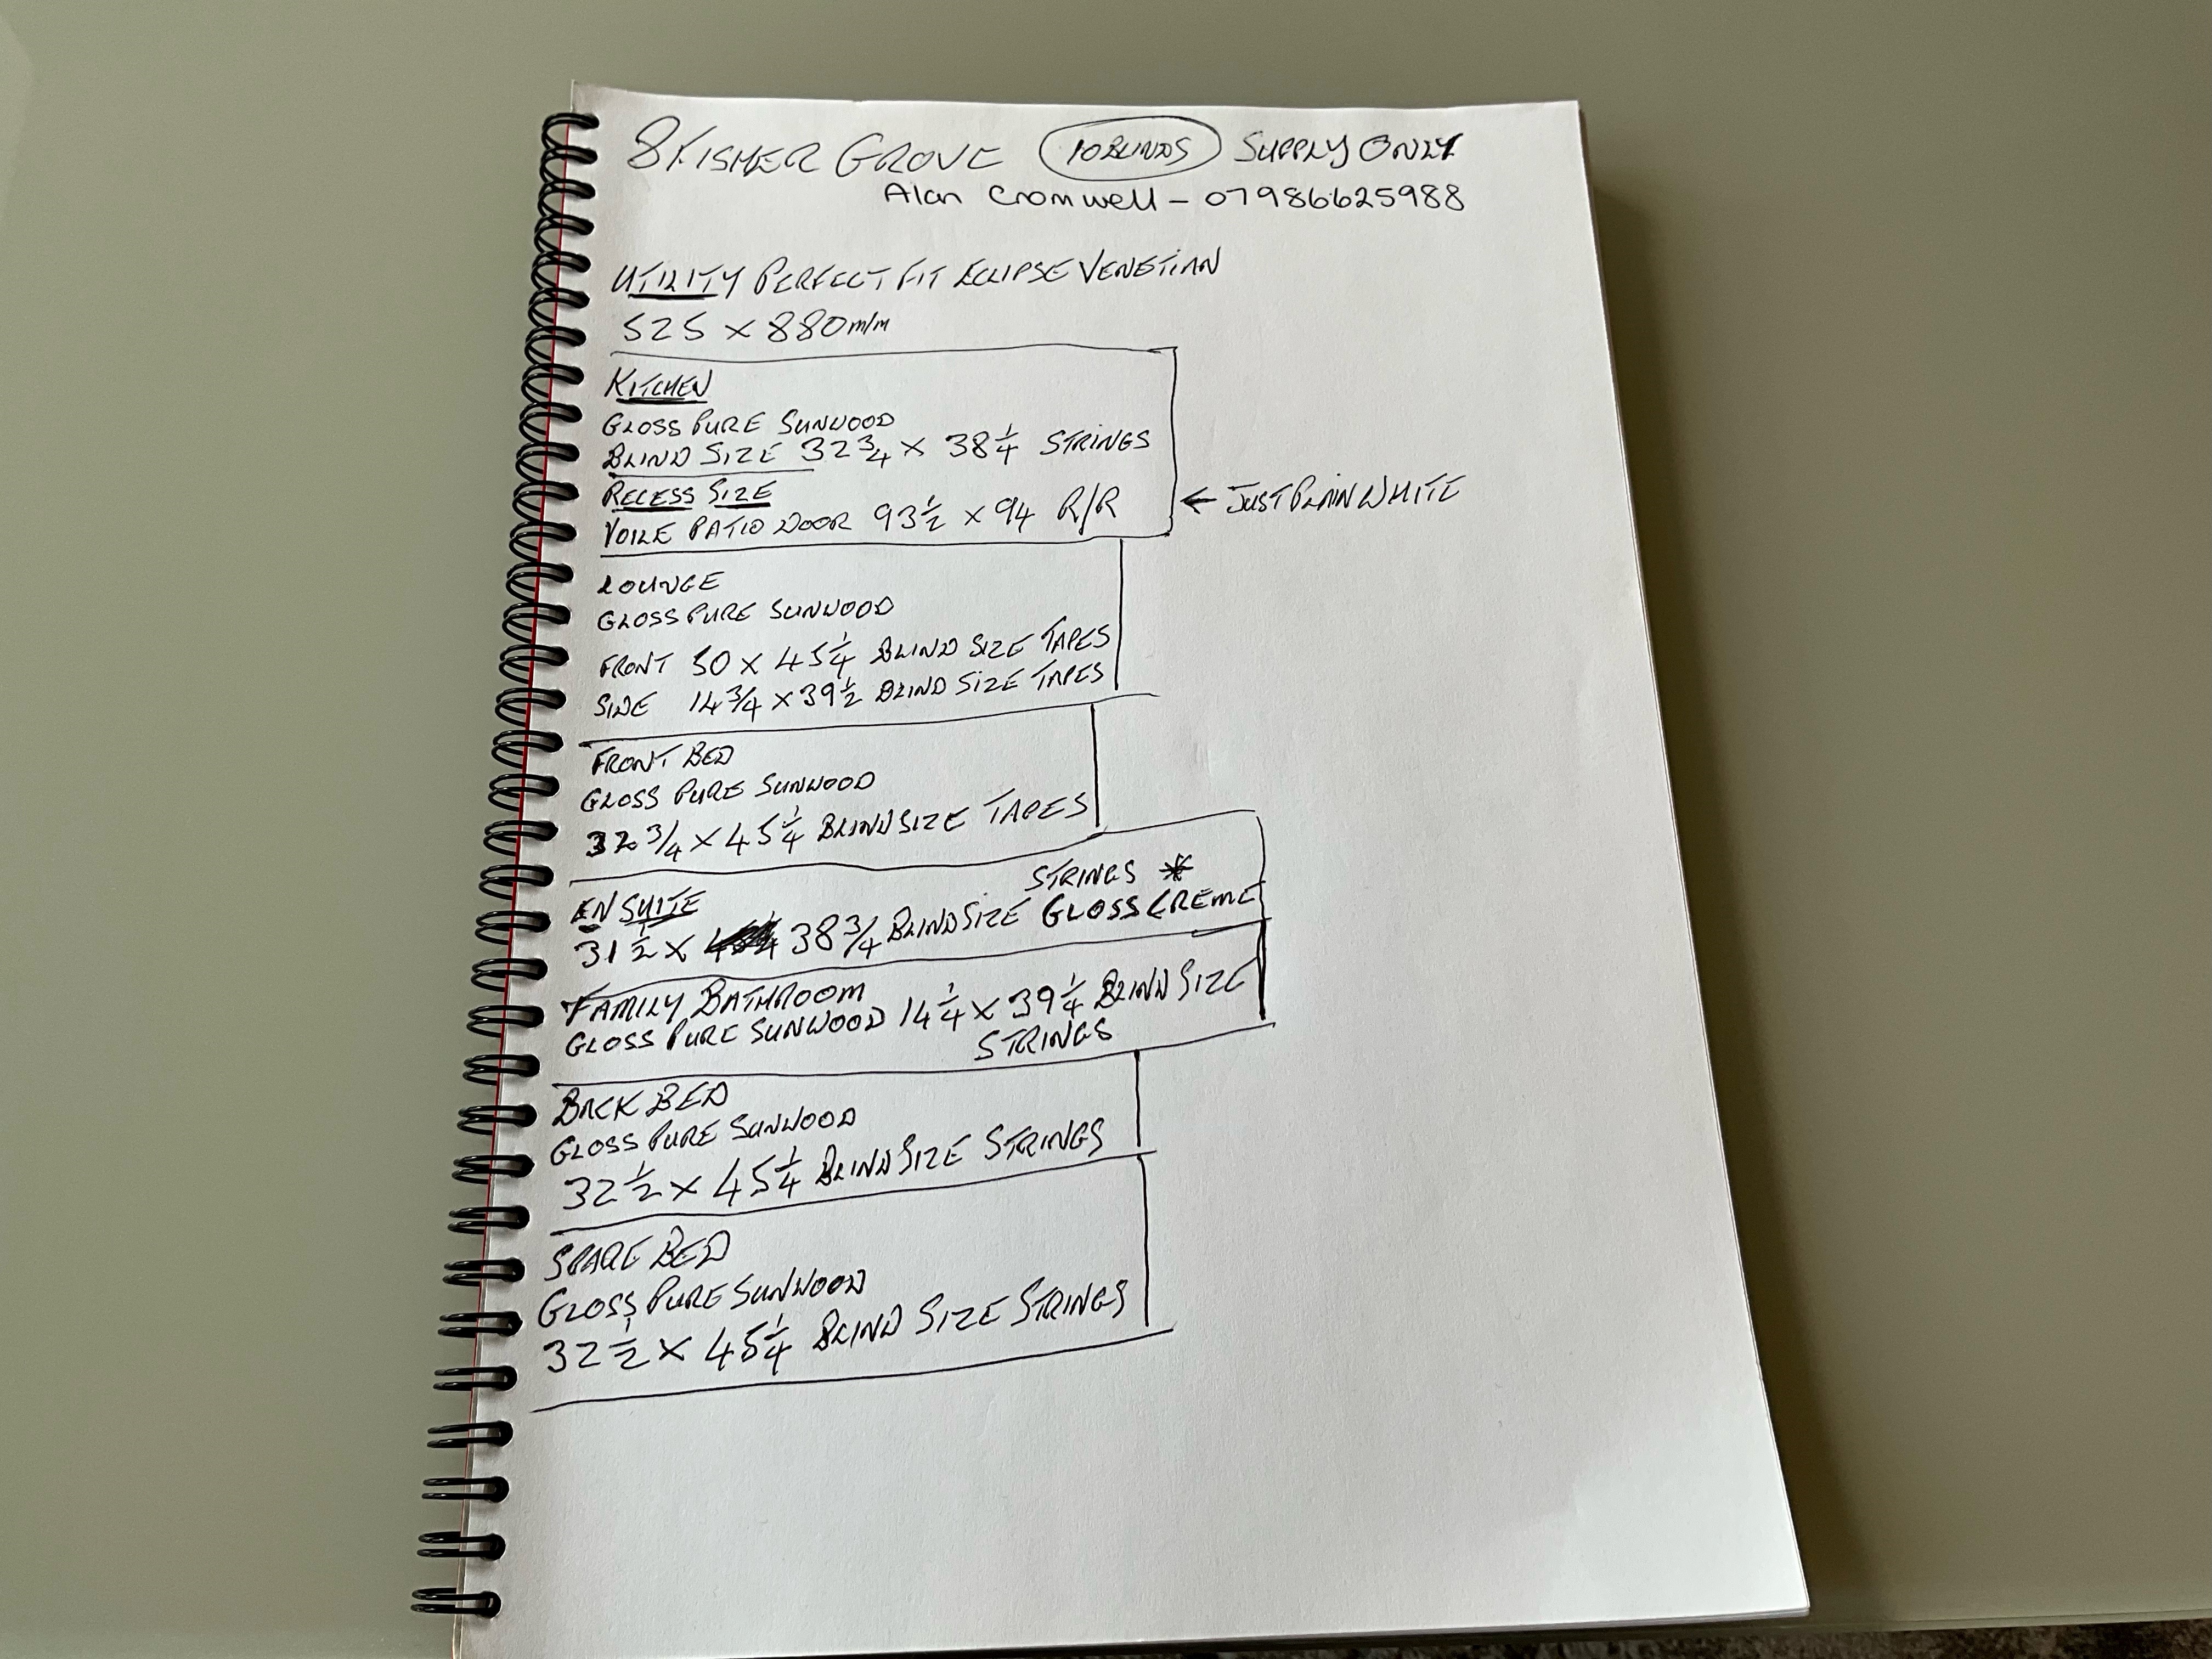 8 FISHER GROVE 10 BLINDS SUPPLY ONLY
Alan Cromwell - 07986625988
UTILITY PERFECT FIT ECLIPSE VENETIAN
525 x 880 m/m
KITCHEN
GLOSS PURE SUNWOOD
BLIND SIZE 32 3/4 x 38 1/4 STRINGS
RECESS SIZE
VOILE PATIO DOOR 93 1/2 x 94 R/R ← JUST PLAIN WHITE
LOUNGE
GLOSS PURE SUNWOOD
FRONT 50 x 45 1/4 BLIND SIZE TAPES
SIDE 14 3/4 x 39 1/2 BLIND SIZE TAPES
FRONT BED
GLOSS PURE SUNWOOD
32 3/4 x 45 1/4 BLIND SIZE TAPES
STRINGS *
EN SUITE
31 1/2 x 38 3/4 BLIND SIZE GLOSS CREME
FAMILY BATHROOM
GLOSS PURE SUNWOOD 14 1/4 x 39 1/4 BLIND SIZE
STRINGS
BACK BED
GLOSS PURE SUNWOOD
32 1/2 x 45 1/4 BLIND SIZE STRINGS
SPARE BED
GLOSS PURE SUNWOOD
32 1/2 x 45 1/4 BLIND SIZE STRINGS